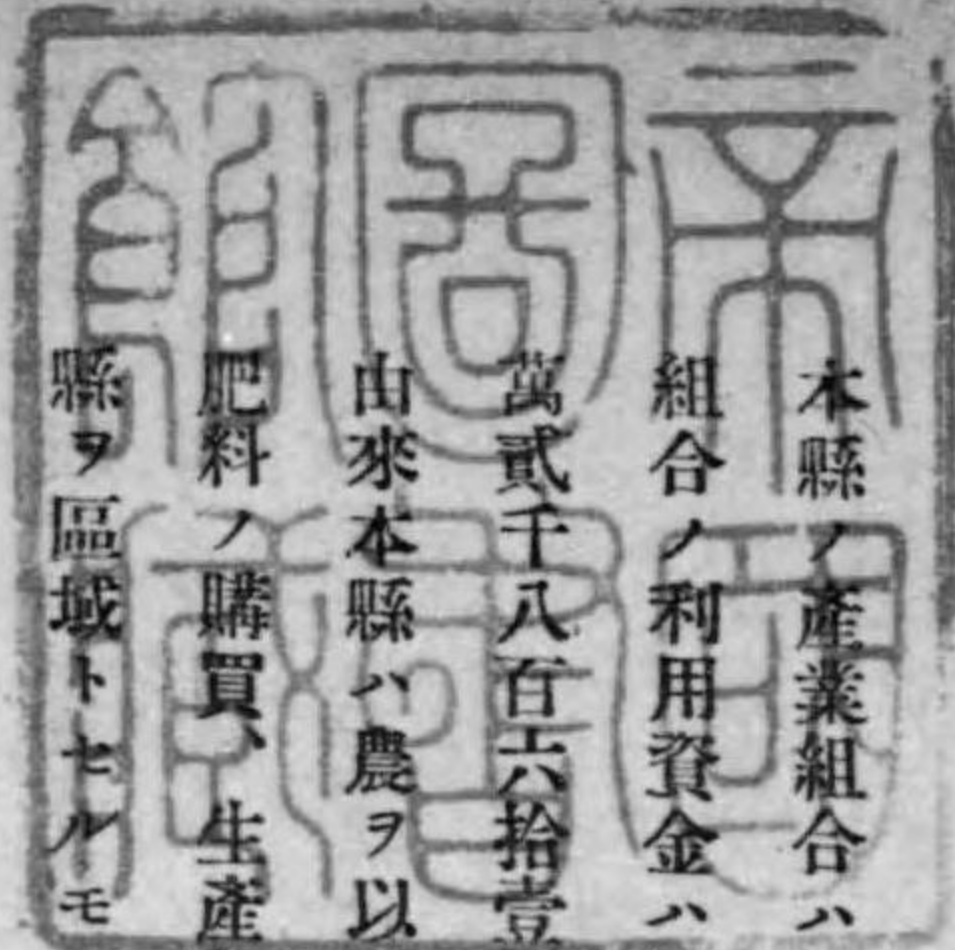 本縣ノ產業組合ハ
組合ノ利用資金ハ
萬貳千八百六拾壹
由來本縣ハ農ヲ以
肥料ノ購買、生產
縣ヲ區域トセルモ